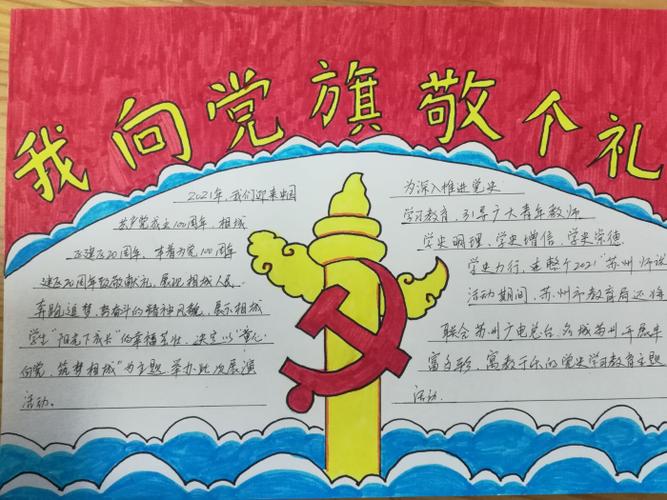 我向党旗敬个礼
2021年,我们迎来中国
共产党成立100周年,相城
区建区20周年,本着为党100周年
建区20周年致敬献礼,展现相城人民
奔跑追梦、奋斗的精神风貌,展示相城
学生“阳光下成长”的幸福,决定以“童心
向党,筑梦相城”为主题举办此次展演
活动。
为深入推进党史
学习教育,引导广大青年教师
学史明理、学史增信、学史崇德
学史力行,在整个2021“苏州师
活动期间,苏州市教育局还将
联合苏州广电总台、名城苏州开展
富多彩,寓教于乐的党史学习教育主题
活动。